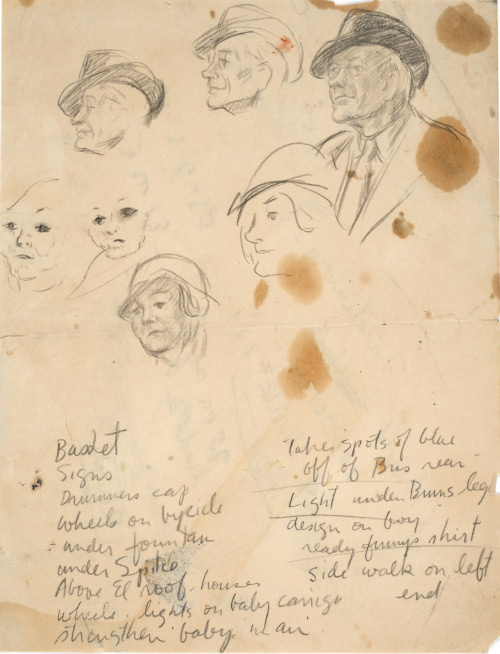 Basket
Signs
Drummers cap
wheels on bycicle
under fountain
under Spike
Above El roof houses
wheels - lights on baby carrige
strengthen baby in air
Take spots of blue
off of Bus rear
Light under Bums leg
design on boy
ready shirt
Side walk on left
end